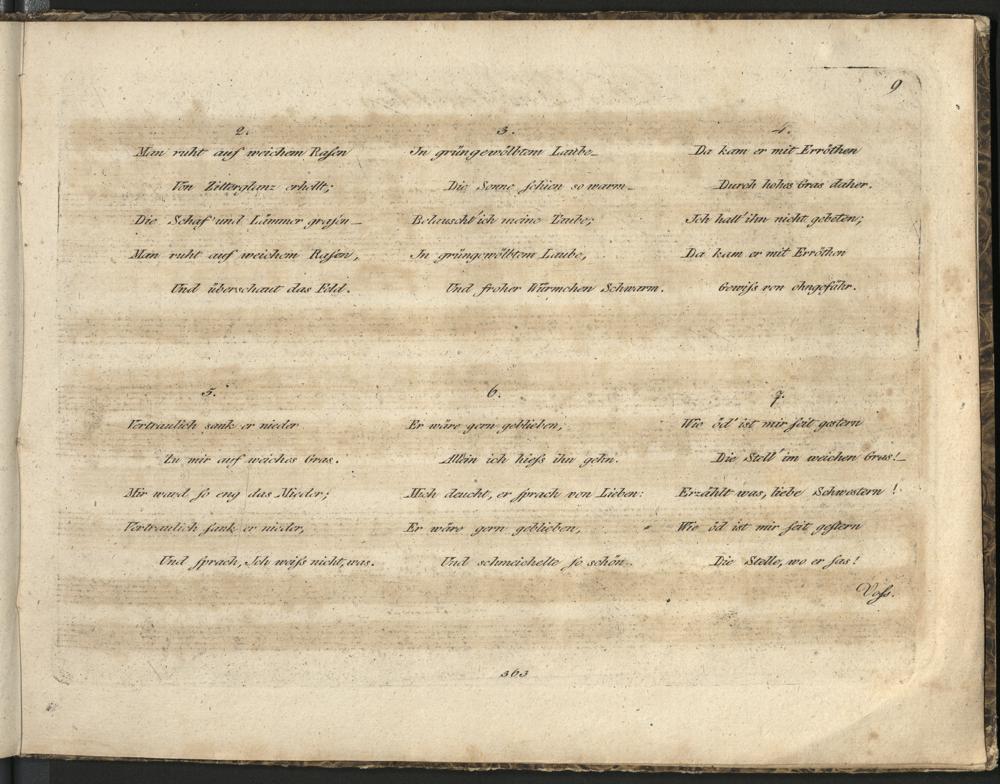 9
2.
Man ruht auf weichem Raſen
Von Zitterglanz erhellt;
Die Schaf' und Lämmer graſen_
Man ruht auf weichem Raſen,
Und überschaut das Feld.
3.
In grüngewölbtem Laube_
Die Sonne ſchien so warm_
Belauscht' ich meine Taube;
In grüngewölbtem Laube,
Und froher Würmchen Schwarm.
4.
Da kam er mit Erröthen
Durch hohes Gras daher.
Ich hatt' ihn nicht gebeten;
Da kam er mit Erröthen
Gewiſs von ohngefähr.
5.
Vertraulich sank er nieder
Zu mir auf weiches Gras.
Mir ward ſo eng das Mieder;
Vertraulich ſank er nieder,
Und ſprach, Ich weiſs nicht, was.
6.
Er wäre gern geblieben;
Allein ich hieſs ihn gehn.
Mich deucht, er ſprach von Lieben:
Er wäre gern geblieben,
Und schmeichelte ſo schön.
7.
Wie öd' ist mir ſeit gestern
Die Stell' im weichen Gras!_
Erzählt was, liebe Schwestern!
Wie öd ist mir ſeit geſtern
Die Stelle, wo er ſas!
Voſs.
363